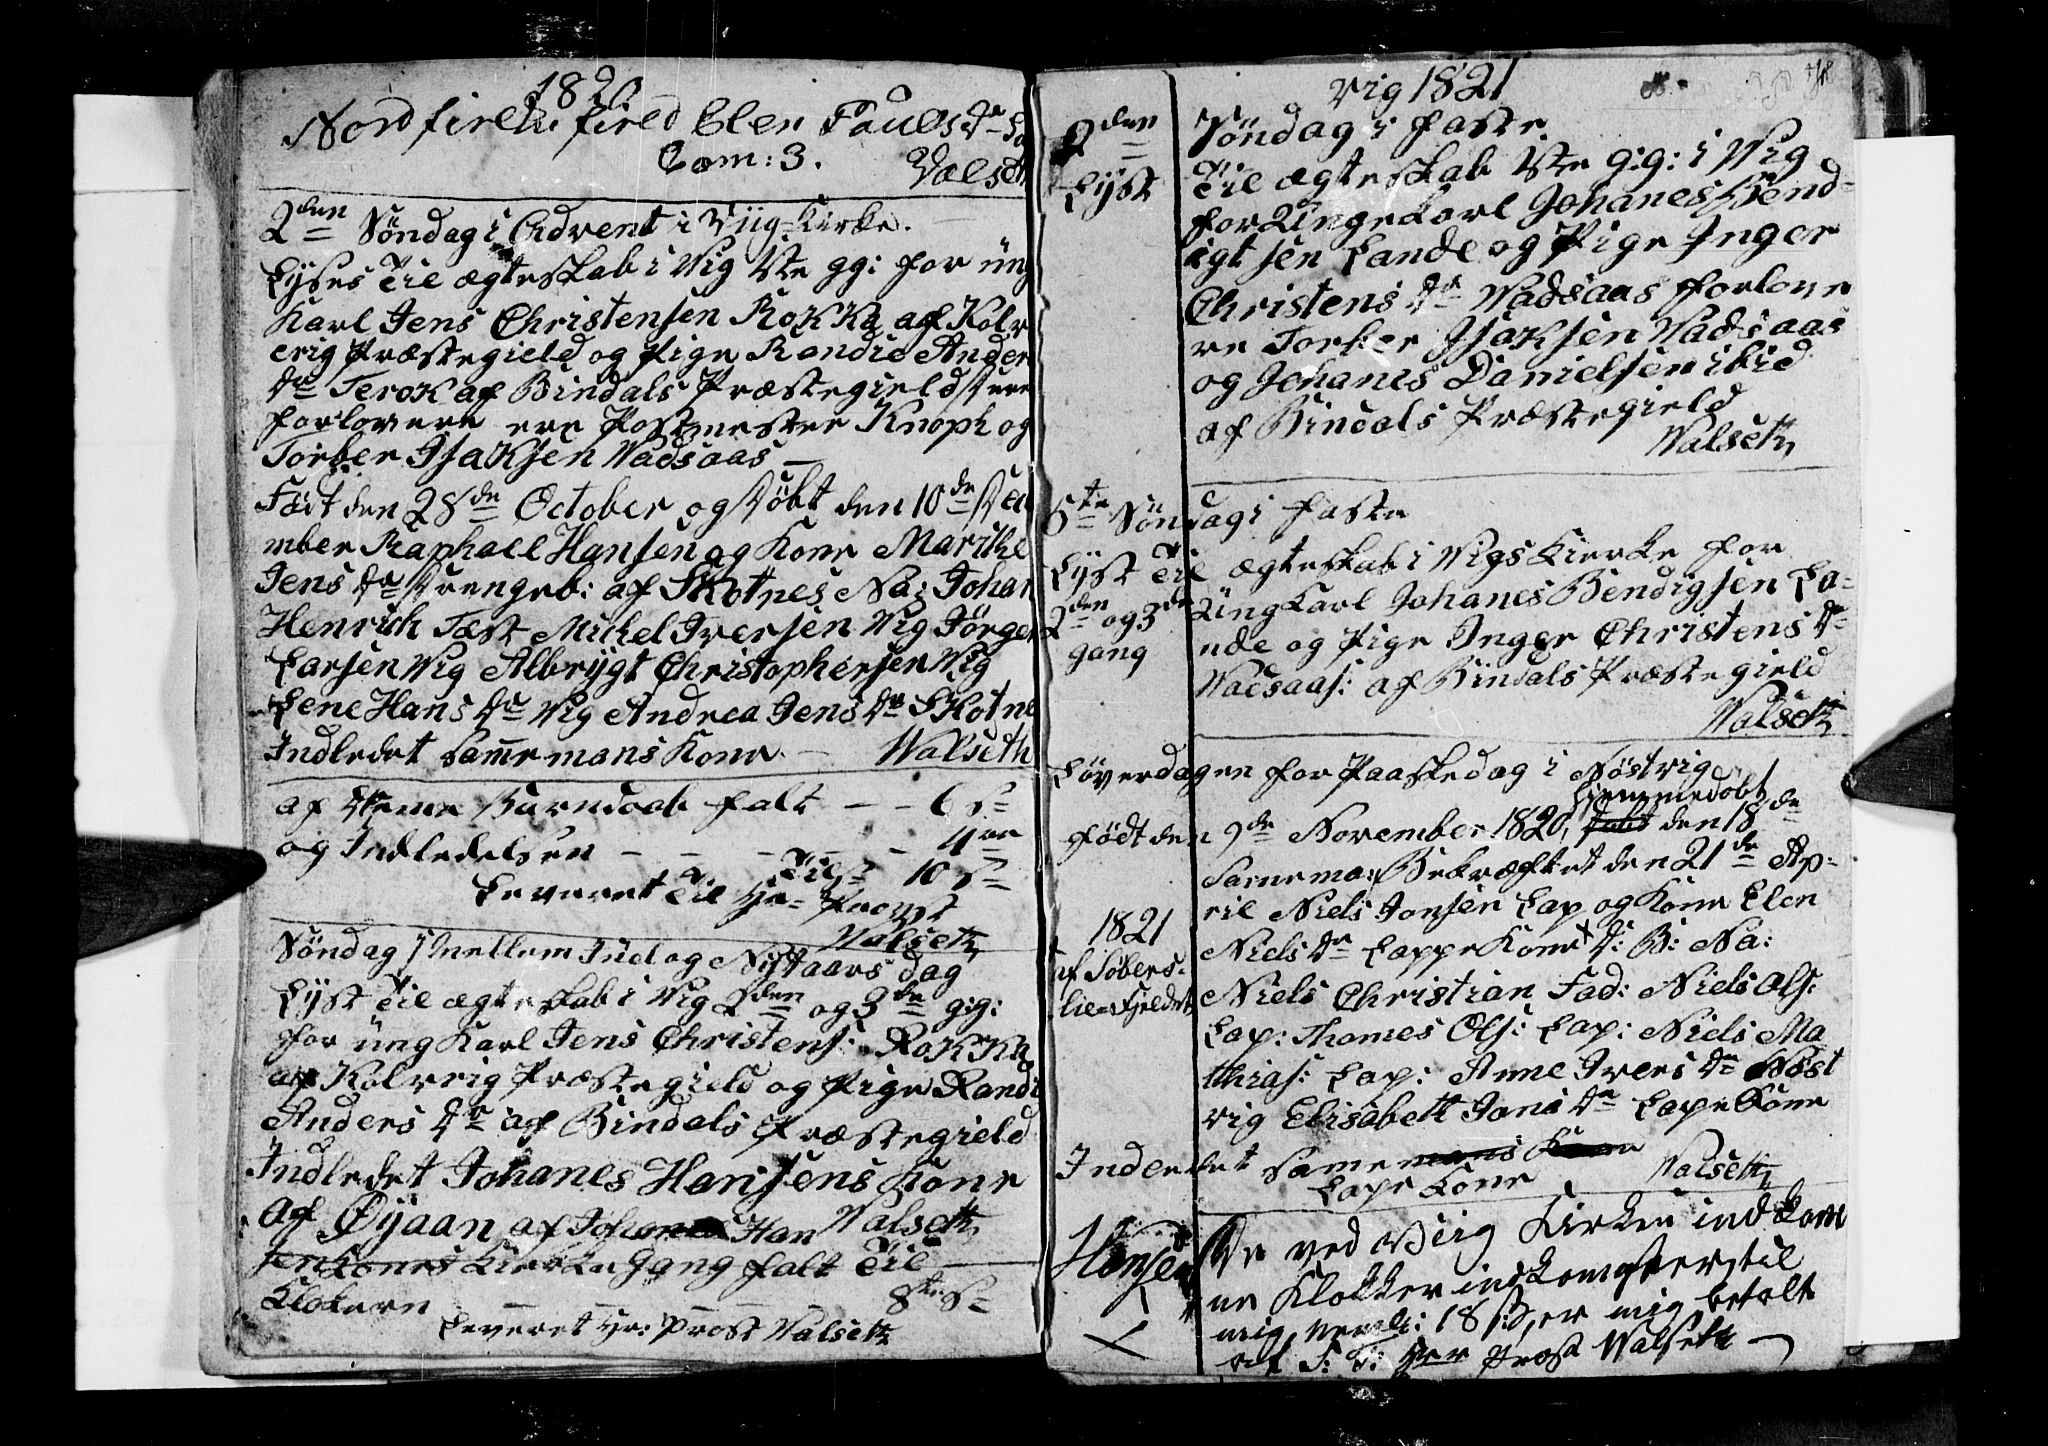 1820
Nordfire fired Elen Pauls dr
Com: 3. Valseth
2den Söndag i Advent i Viig Kirke.
Lyses Til ægteskab i Vig 1ste gg: for ung
Karl Jens Christensen Rokka af Kolv
erig Præstegield og Pige Randie Anders
dr Terok af Bindals Præstegield
forlovere ere Postmester Knoph og
Torber Isaksen Vadsaas
Födt den 28de October og döbt den 10de
mber Raphael Hansen og Kone Marithe
Jens dr Drengeb: af Skotnes Na: Johan
Henrich Tæst Michel Iversen Vig Jörgen
Larsen Vig Albrygt Christophersen Vig
Lene Hans dr Vig Andrea Jens dr Skotnes
Indledet samme mans Kone Walseth
af denne Barndaab falt - - 6 s
og Indledelsen - - - - - 4
Til 10 s
Leveret Til Hr Provst
Walseth
Söndag Mellem Juel og Nytaars dag
Lyst Til ægteskab i Vig 2den og 3de gg:
for ung Karl Jens Christens: Rokka
af Kolvrig Præstegield og Pige Randi
Anders dr af Bindals Præstegield
Indledet Johanes Hansens Kone
af Öyaan af Johanes Han Walseth
sen Kones Kirke Gang falt Til
Klokern - - - - 8 s
Leveret Hr: Prost Walseth
Vig 1821
2den Söndag i faste
Lyst Til ægteskab 1ste gg: i Vig
for Ungekarl Johanes Bend-
igtsen Lande og Pige Inger
Christens dr Vadsaas forlove
re Torber Isaksen Vadsaas
og Johanes Danielsen ibid
af Bindals Præstegield
Walseth
5te Söndag i faste
Lyst Til ægteskab i Vigs Kierke for
2den og 3de gang
Ung Karl Johanes Bendigsen La-
nde og Pige Inger Christens dr
Vadsaas: af Bindals Præstegield
Walseth
Löverdagen for Paaskedag i Nöstvig
hiemmedöbt
födt den 9de November 1820, döbt den 18de
Samme ma: Bekræftet den 21de Ap-
ril Niels Jonsen Lap og Kone Elen
Niels dr Lappe Kone D: B: Na:
Niels Christian Fad: Niels Ols:
Lap: Thomes Ols: Lap: Niels Ma
thias: Lap: Anne Ivers dr Nöst
vig Elisabeth Jons dr Lape Kone
1821
af Söbers-
lie-Fjeldet
Indledet same mans Kone
Lape Kone Walseth
Hansen
De ved Viig Kirken indkom
ne Klokker indkomster til
mig, neml: 18 s, er mig betalt
af S: T: Her Prost Walseth